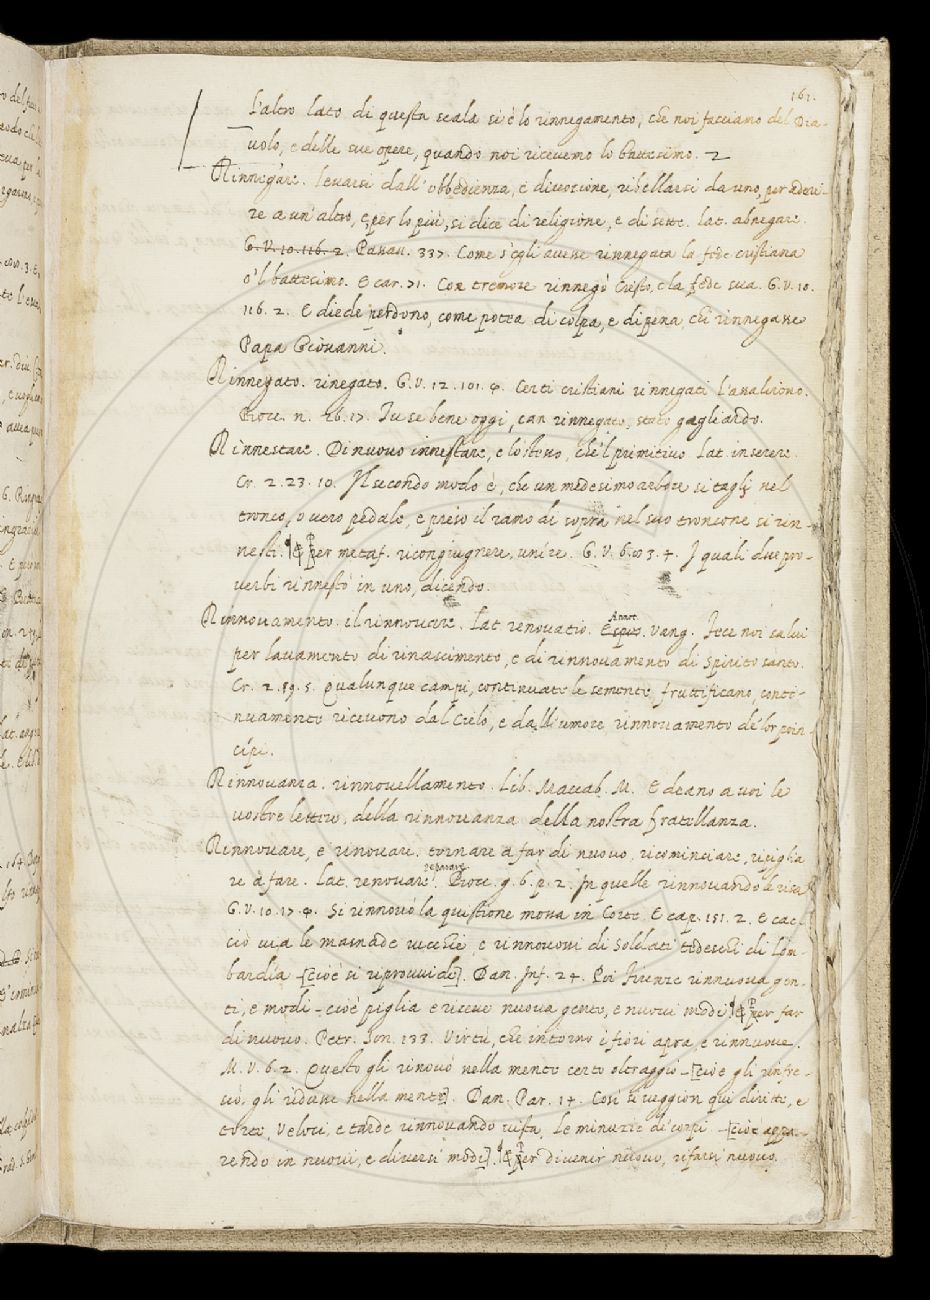 161.
L'altro lato di questa scala si è lo rinnegamento, che noi facciamo del Dia-
uolo, e delle sue opere, quando noi riceuemo lo battesimo. 2
Rinnegàre. leuarsi dall' obbedienza, e diuozione, ribellarsi da uno, per aderi-
re a un' altro, e, per lo più, si dice di religione, e di sette. lat. abnegare.
G. V. 10. 116. 2. Passau. 337. Come s'egli auesse rinnegata la fede cristiana
o 'l battesimo. E car. 71. Con tremore rinnegò Cristo, e la fede sua. G. V. 10.
116. 2. E diede perdono, come potea di colpa, e di pena, chi rinnegasse
Papa Giouanni.
Rinnegato. rinegato. G. V. 12. 101. 4. Certi cristiani rinnegati l'assaliròno.
Bocc. n. 26. 17. Tu se bene oggi, can rinnegato, stato gagliardo.
Rinnestare. Di nuouo innestare, e lo stesso, che 'l primitiuo lat. inserere.
Cr. 2. 23. 10. Il secondo modo è, che un medesimo arbore si tagli nel
tronco, o uero pedale, e preso il ramo di sopra nel suo troncone si rin-
nesti. ¶ E per metaf. ricongiugnere, unire. G. V. 6. 3. 4. I quali due pro-
uerbi rinnestò in uno, dicendo.
Rinnouamento. il rinnouare. lat. renouatio. Annot. Vang. Fece noi salui
per lauamento di rinascimento, e di rinnouamento di Spirito santo.
Cr. 2. 89. 5. Qualunque campi, continuato le semente fruttificano, conti-
nuamente riceuono dal Cielo, e dall' umore rinnouamento de' lor prin-
cipi.
Rinnouanza. rinnouellamento. Lib. Maccab. M. E deano a uoi le
uostre lettere, della rinnouanza della nostra fratellanza.
Rinnouare, e rinouare. tornare a far di nuouo, ricominciare, ripiglia
re a fare. lat. renouare, reparare. Bocc. g. 6. p. 2. In quelle rinnouando le risa
G. V. 10. 17. 4. Si rinnouò la quistione mossa in Corte. E cap. 151. 2. E cac-
ciò uia le masnade uecchie, e rinnouossi di soldati tedeschi di Lom-
bardia - [cioè si riprouuide]. Dan. Inf. 24. Poi Firenze rinnuoua gen-
ti, e modi - cioè piglia e riceue nuoua gente, e nuoui modi ¶ E per far
di nuouo. Petr. Son. 133. Virtù, che intorno i fiori apra, e rinnuoue.
M. V. 6. 2. Questo gli rinouò nella mente certo oltraggio - [cioè gli rinfre-
scò, gli ridusse nella mente]. Dan. Par. 14. Così si ueggion qui diritte, e
torte, Veloci, e tarde rinnouando uista, Le minuzie de' corpi - [cioè appa-
rendo in nuoui, e diuersi modi]. ¶ E per diuenir nuouo, rifarsi nuouo.